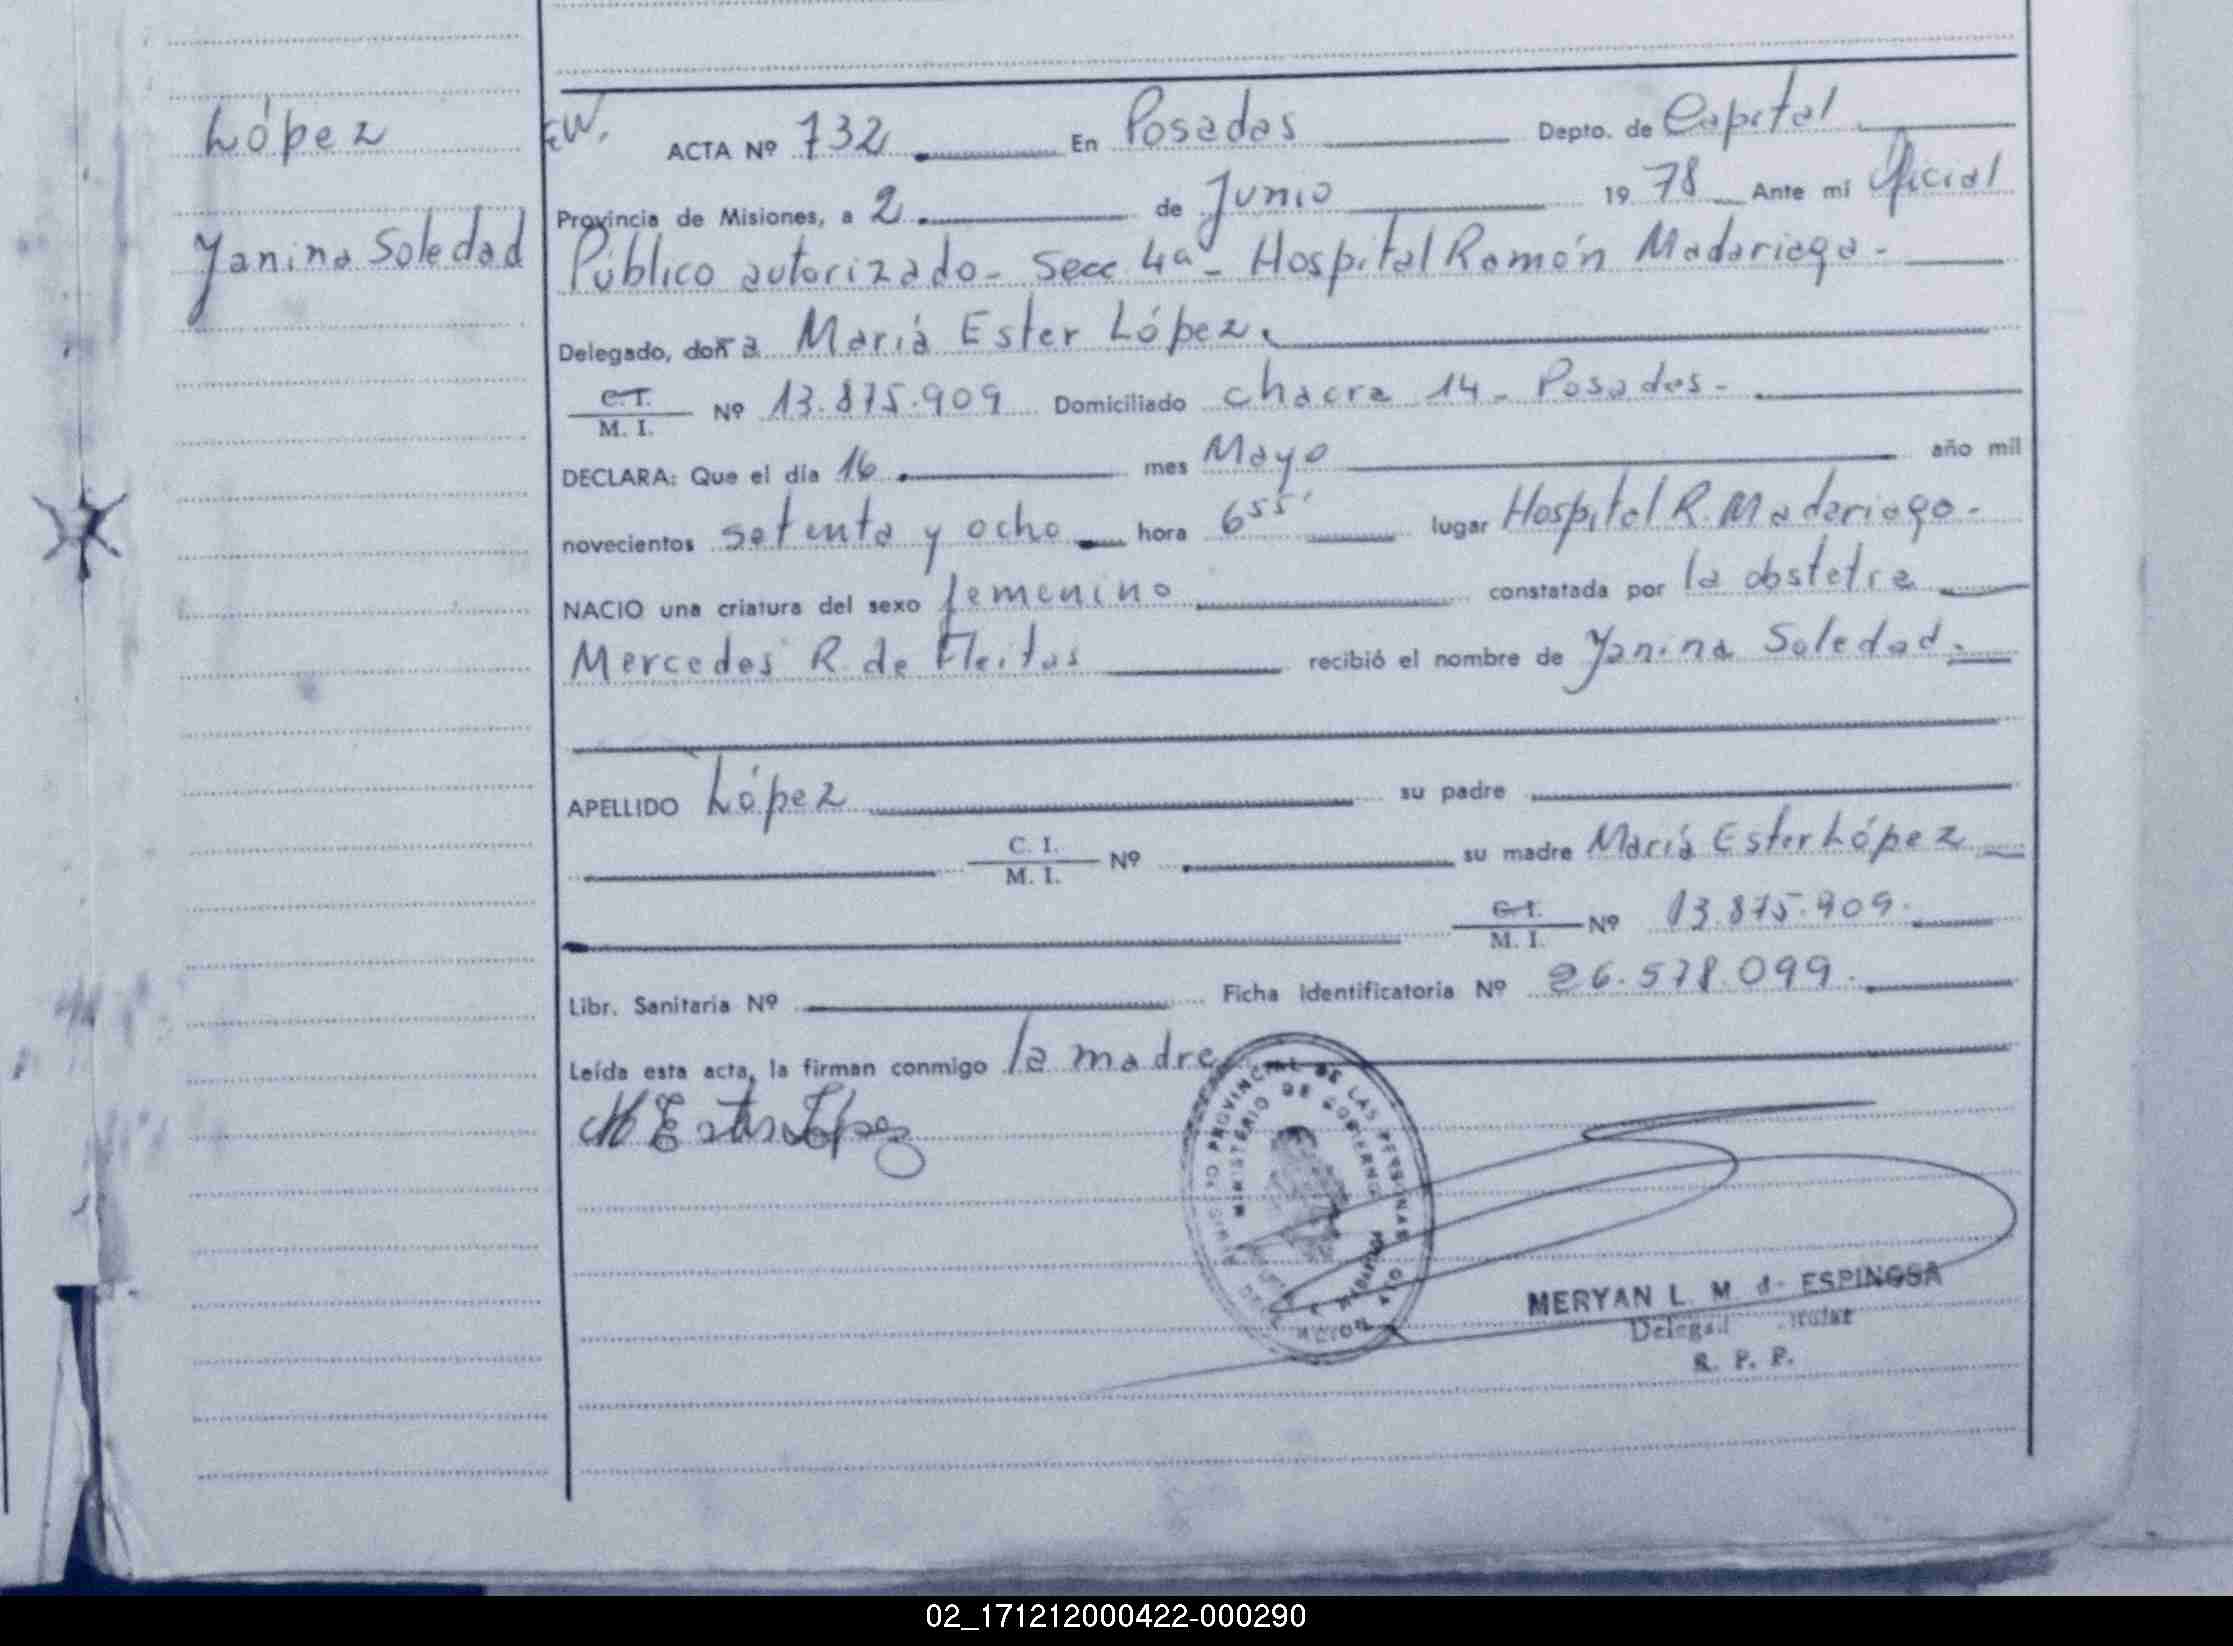 López
Yanina Soledad
ACTA Nº 732 En Posadas Depto. de Capital
Provincia de Misiones, a 2 de Junio 19 78 Ante mi Oficial
Público autorizado - Secc 4ª - Hospital Ramón Madariaga -
Delegado, doña María Ester López.
C. I. / M. I. Nº 13.875.909 Domiciliado chacra 14 - Posadas -
DECLARA: Que el día 16 mes Mayo año mil
novecientos setenta y ocho hora 6 55' lugar Hospital R. Madariaga.
NACIO una criatura del sexo femenino constatada por la obstetra
Mercedes R. de Fleitas recibió el nombre de Yanina Soledad.
APELLIDO López su padre
C. I. / M. I. Nº su madre María Ester López
C. I. / M. I. Nº 13.875.909.
Libr. Sanitaria Nº Ficha Identificatoria Nº 26.578.099.
Leída esta acta, la firman conmigo la madre
M Ester López
PROVINCIAL DE LAS PERSONAS
MINISTERIO DE GOBIERNO
MERYAN L. M. de ESPINOSA
R. P. P.
02_171212000422-000290